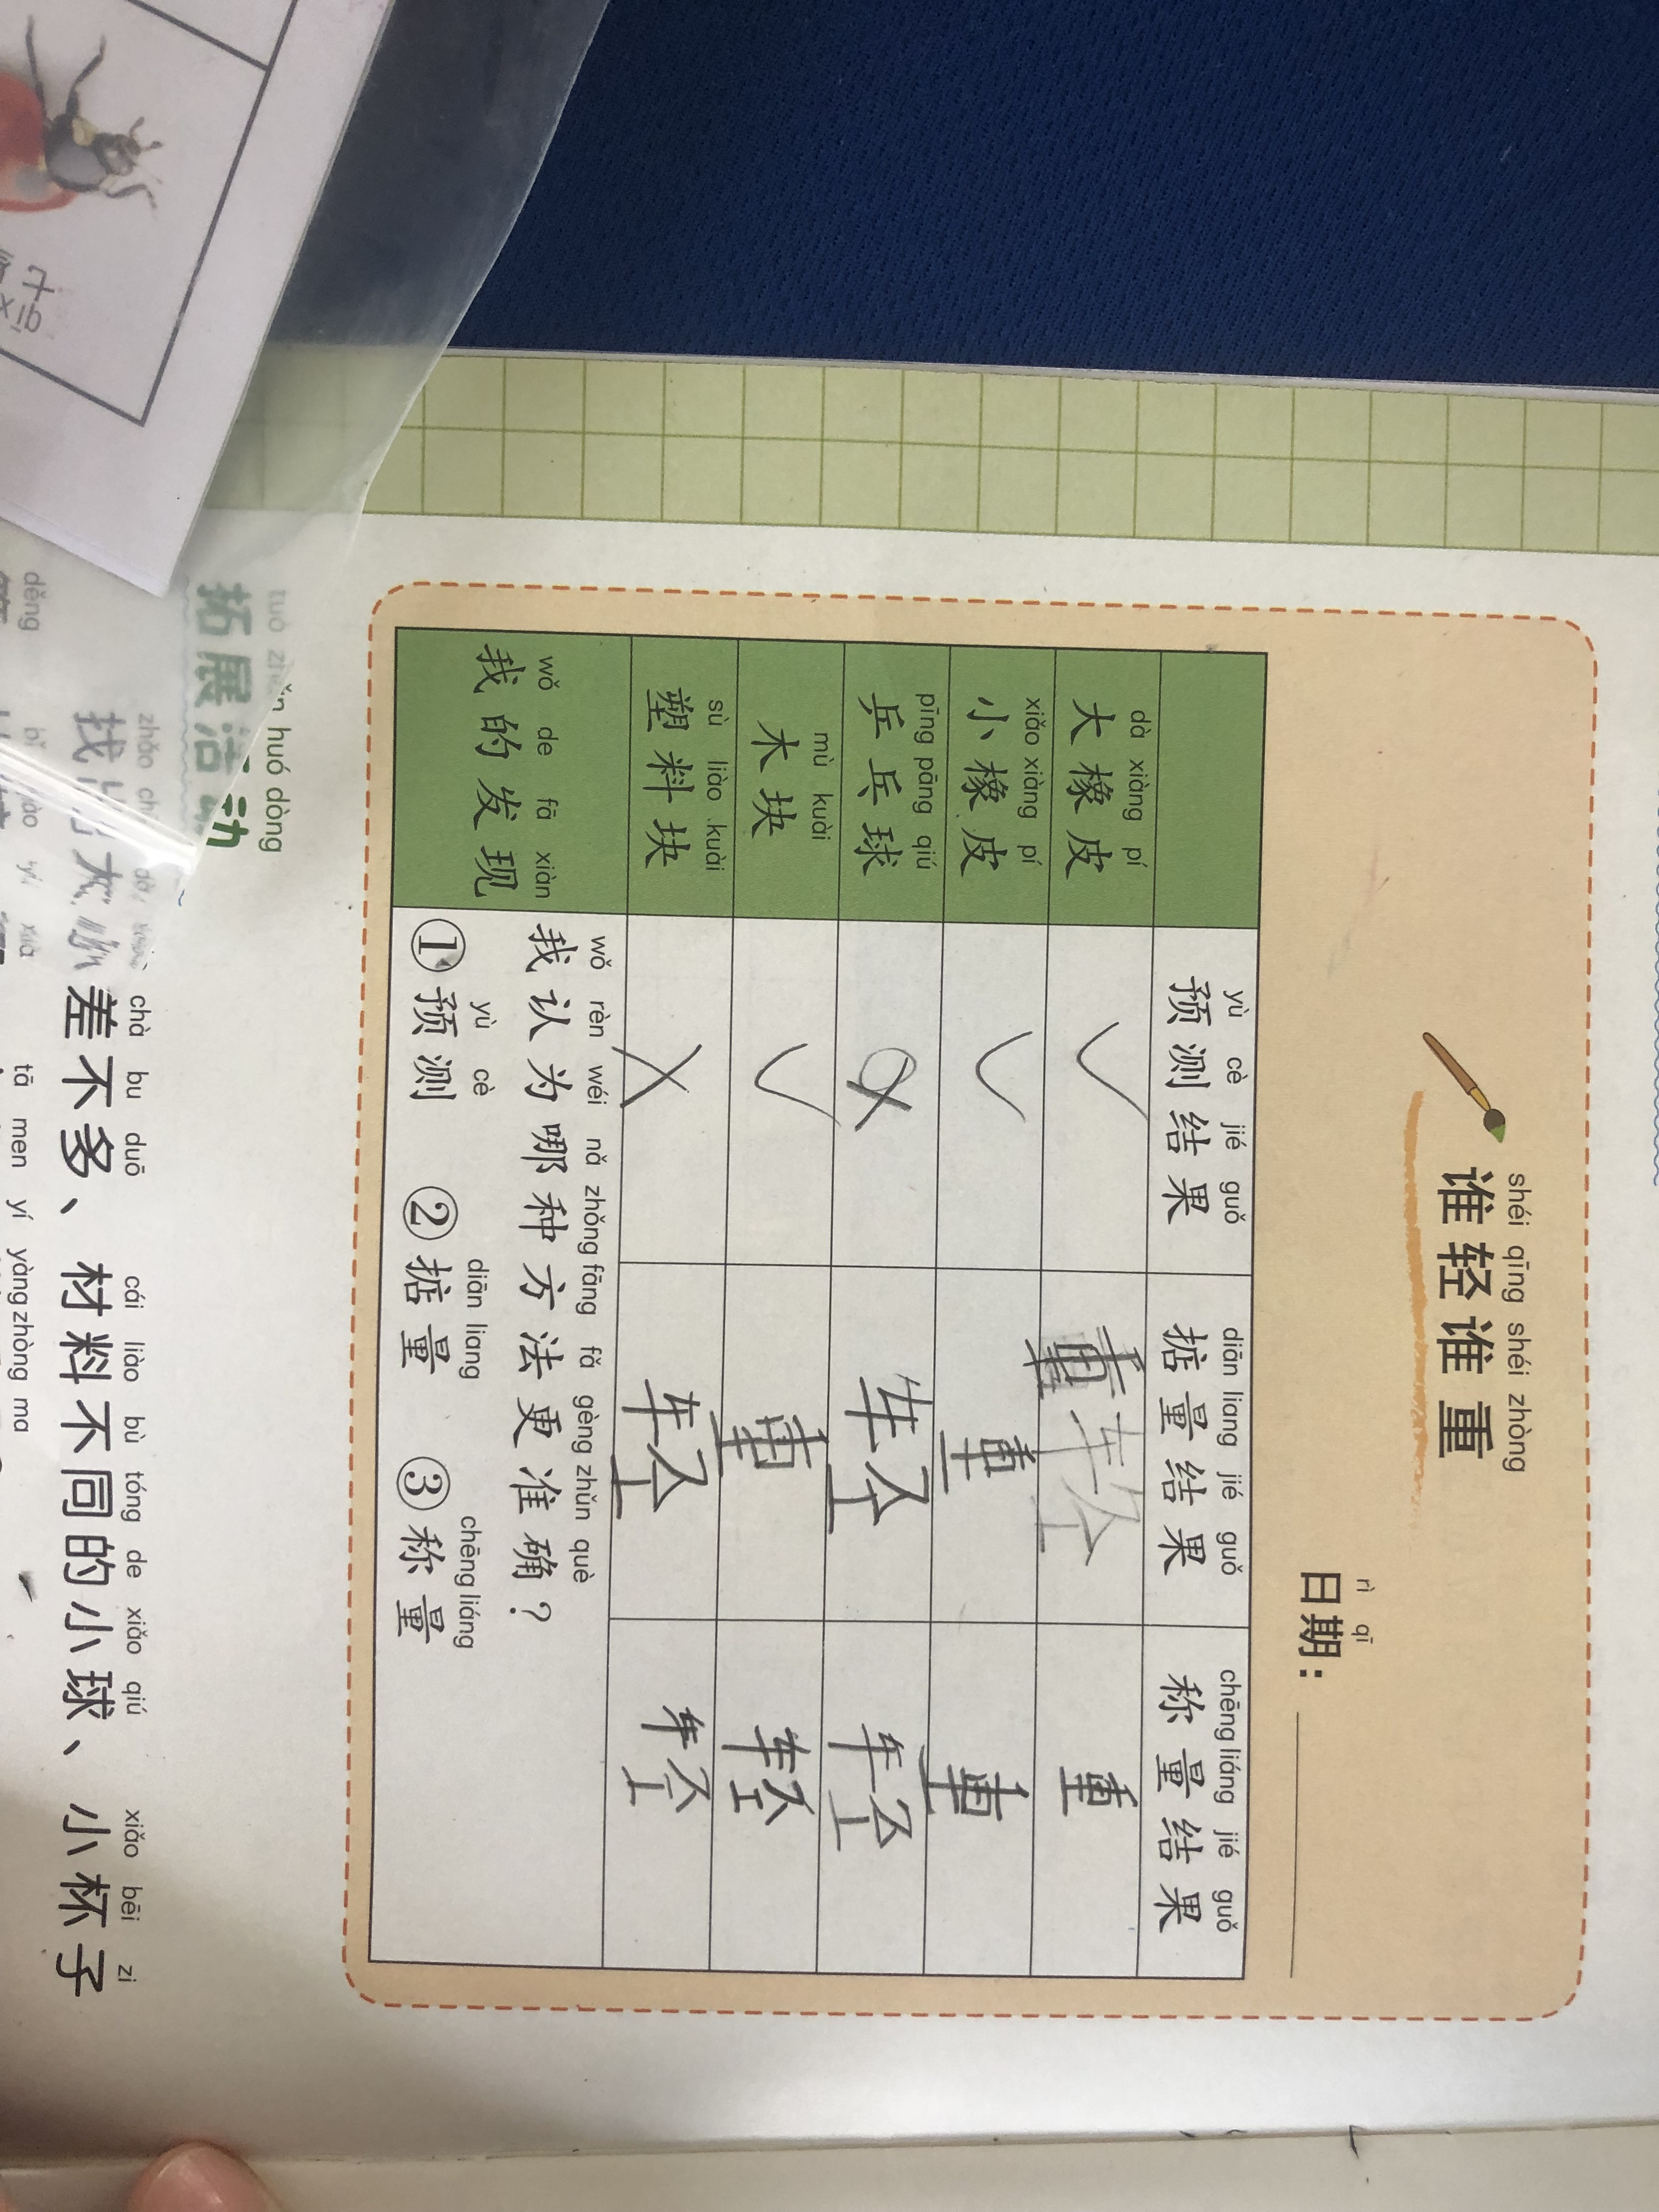 shéi qīng shéi zhòng
谁轻谁重
rì qī
日期：
yù cè jié guǒ diān liang jié guǒ chēng liáng jié guǒ
预测结果 掂量结果 称量结果
dà xiàng pí
大橡皮 ✓ 重 轻 重
xiǎo xiàng pí
小橡皮 ✓ 重 重
pīng pāng qiú
乒乓球 轻 轻
mù kuài
木块 ✓ 重 轻
sù liào kuài
塑料块 × 轻 轻
wǒ de fā xiàn
我的发现
wǒ rèn wéi nǎ zhǒng fāng fǎ gèng zhǔn què
我认为哪种方法更准确？
yù cè diān liang chēng liáng
①预测 ②掂量 ③称量
tuò zhǎn huó dòng
拓展活动
chà bu duō cái liào bù tóng de xiǎo qiú xiǎo bēi zi
差不多、材料不同的小球、小杯子
děng tā men yí yàng zhòng ma